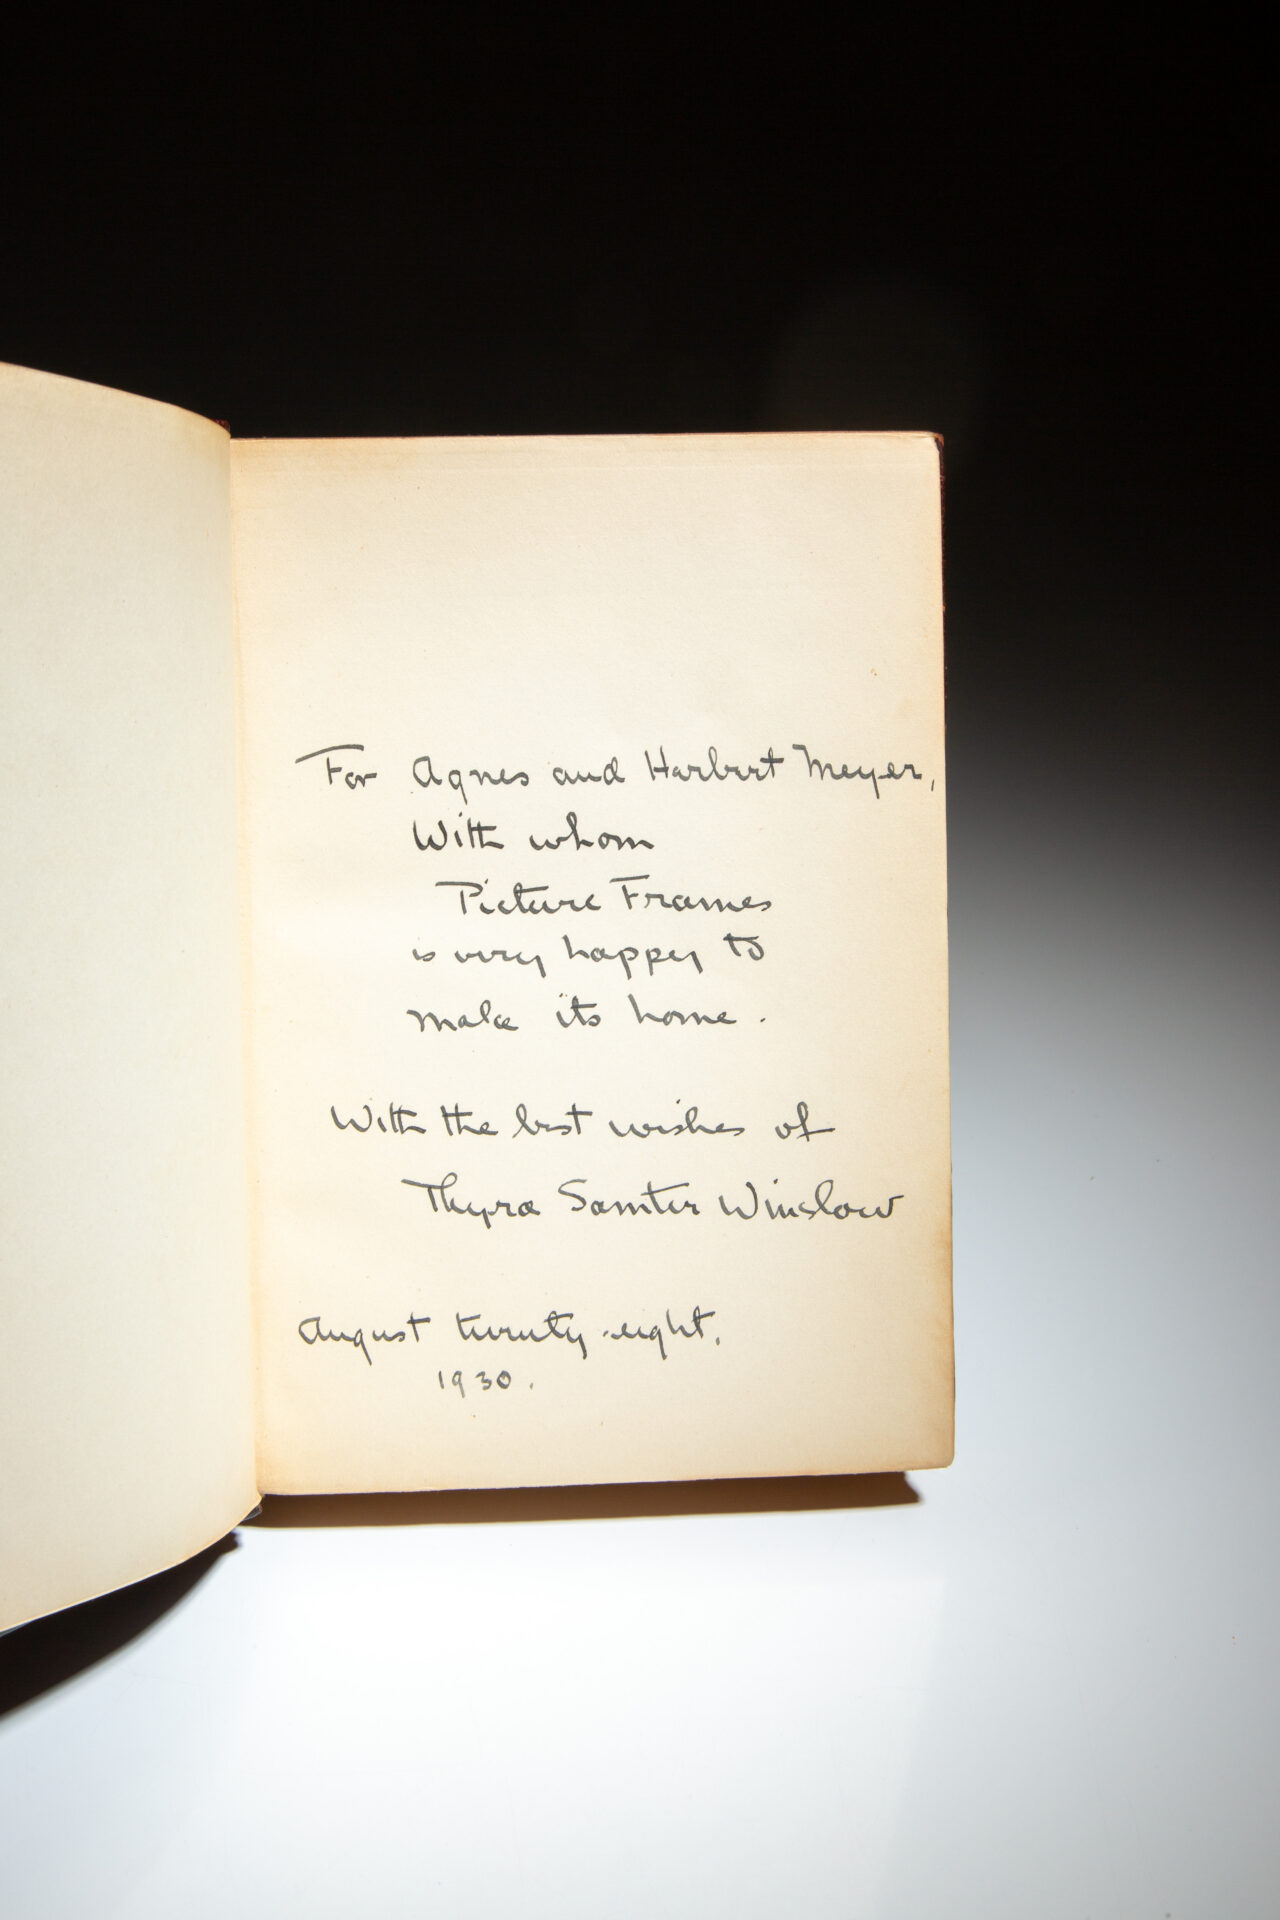 For Agnes and Herbert Meyer,
With whom
Picture Frames
is very happy to
make its home.
With the best wishes of
Thyra Samter Winslow
August twenty-eight,
1930.